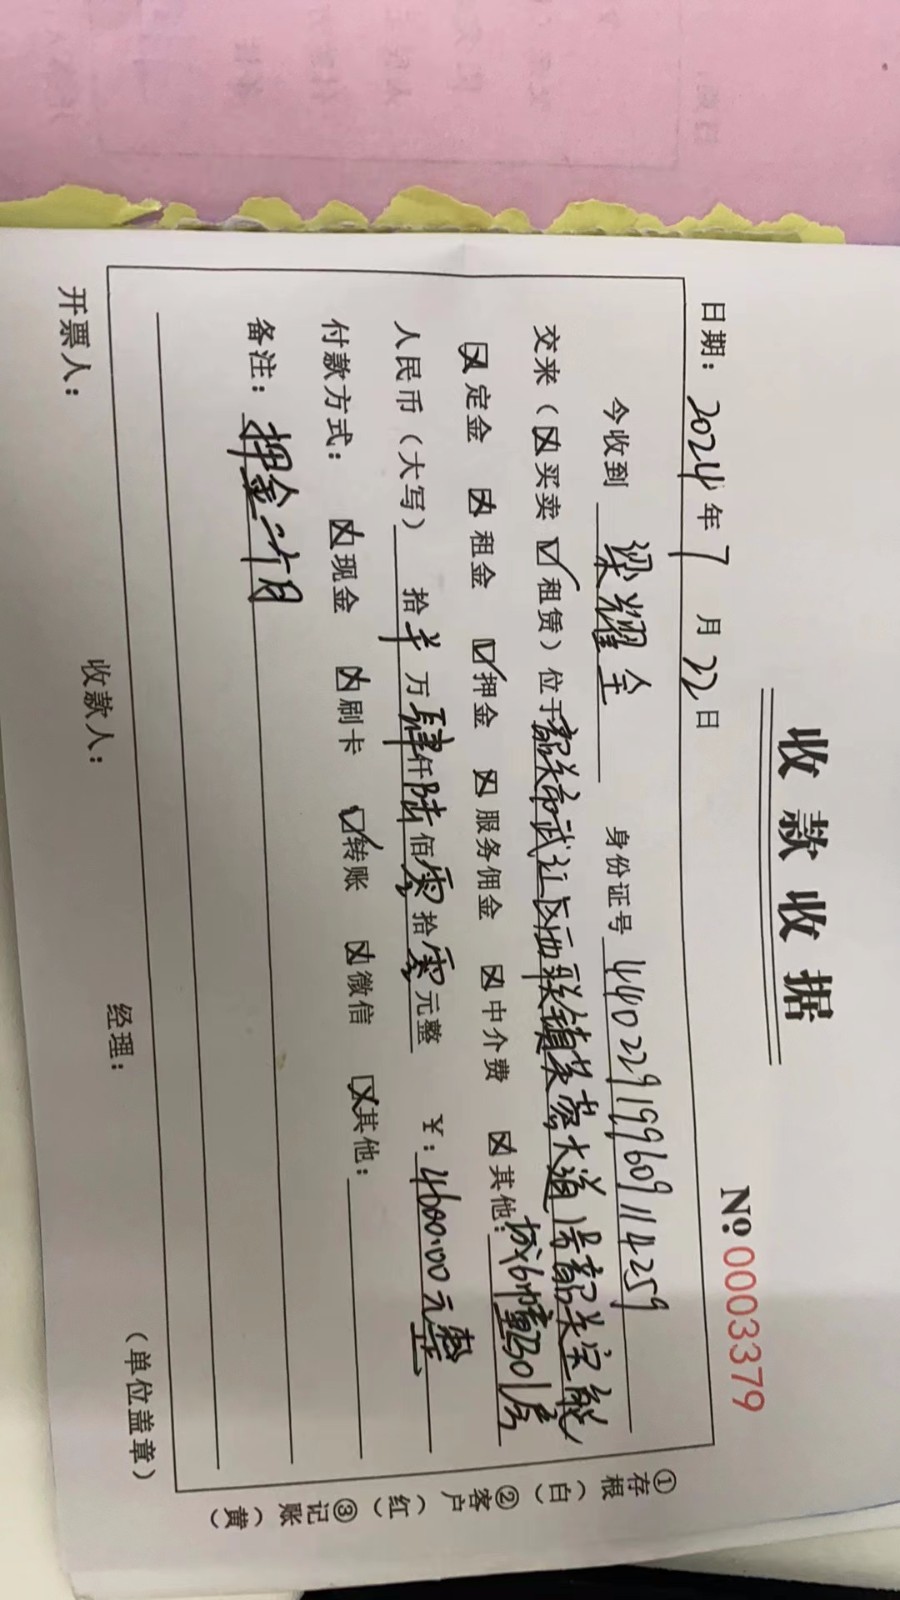 收款收据
No 0003379
日期：2024年7月22日
今收到 梁耀全 身份证号 440229199609114259
交来（☒买卖 ☑租赁）位于韶关市武江区西联镇芙蓉大道 号韶关宝能
☒定金 ☒租金 ☑押金 ☒服务佣金 ☒中介费 ☒其他：城6幢3301房
人民币（大写） 拾 万肆仟陆佰零拾零元整 ￥：4600.00元整
付款方式： ☒现金 ☒刷卡 ☑转账 ☒微信 ☒其他：
备注：押金二个月
开票人： 收款人： 经理： （单位盖章）
①存根（白） ②客户（红） ③记账（黄）